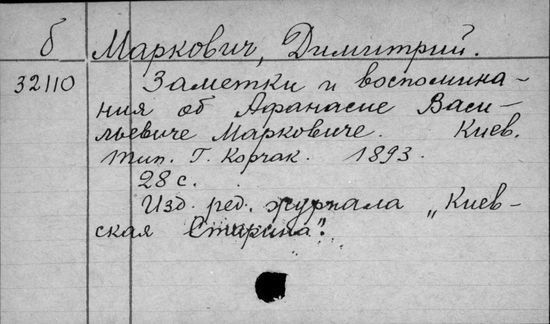 б Маркович, Димитрий.
32110 Заметки и воспомина-
ния об Афанасие Васи-
льевиче Марковиче. Киев.
тип. Г. Корчак. 1893.
28 с.
Изд. ред. журнала „Киев-
ская Старина".